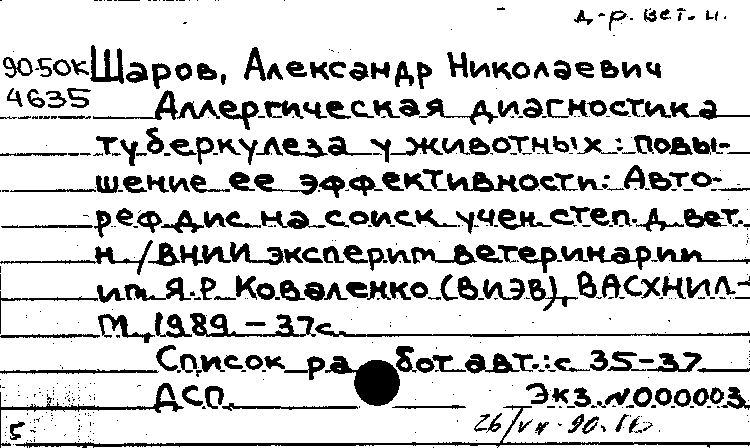 д-р. вет. н.
90-50К Шаров, Александр Николаевич
4635 Аллергическая диагностика
туберкулеза у животных: повы-
шение ее эффективности: Авто-
реф.дис.на соиск.учен.степ.д.вет.
н./ВНИИ эксперим.ветеринарии
им. Я.Р. Коваленко (ВИЭВ), ВАСХНИЛ.-
М.,1989.-37с.
Список работ авт.:с.35-37
ДСП. Экз.№000003
5 26/VII-90.